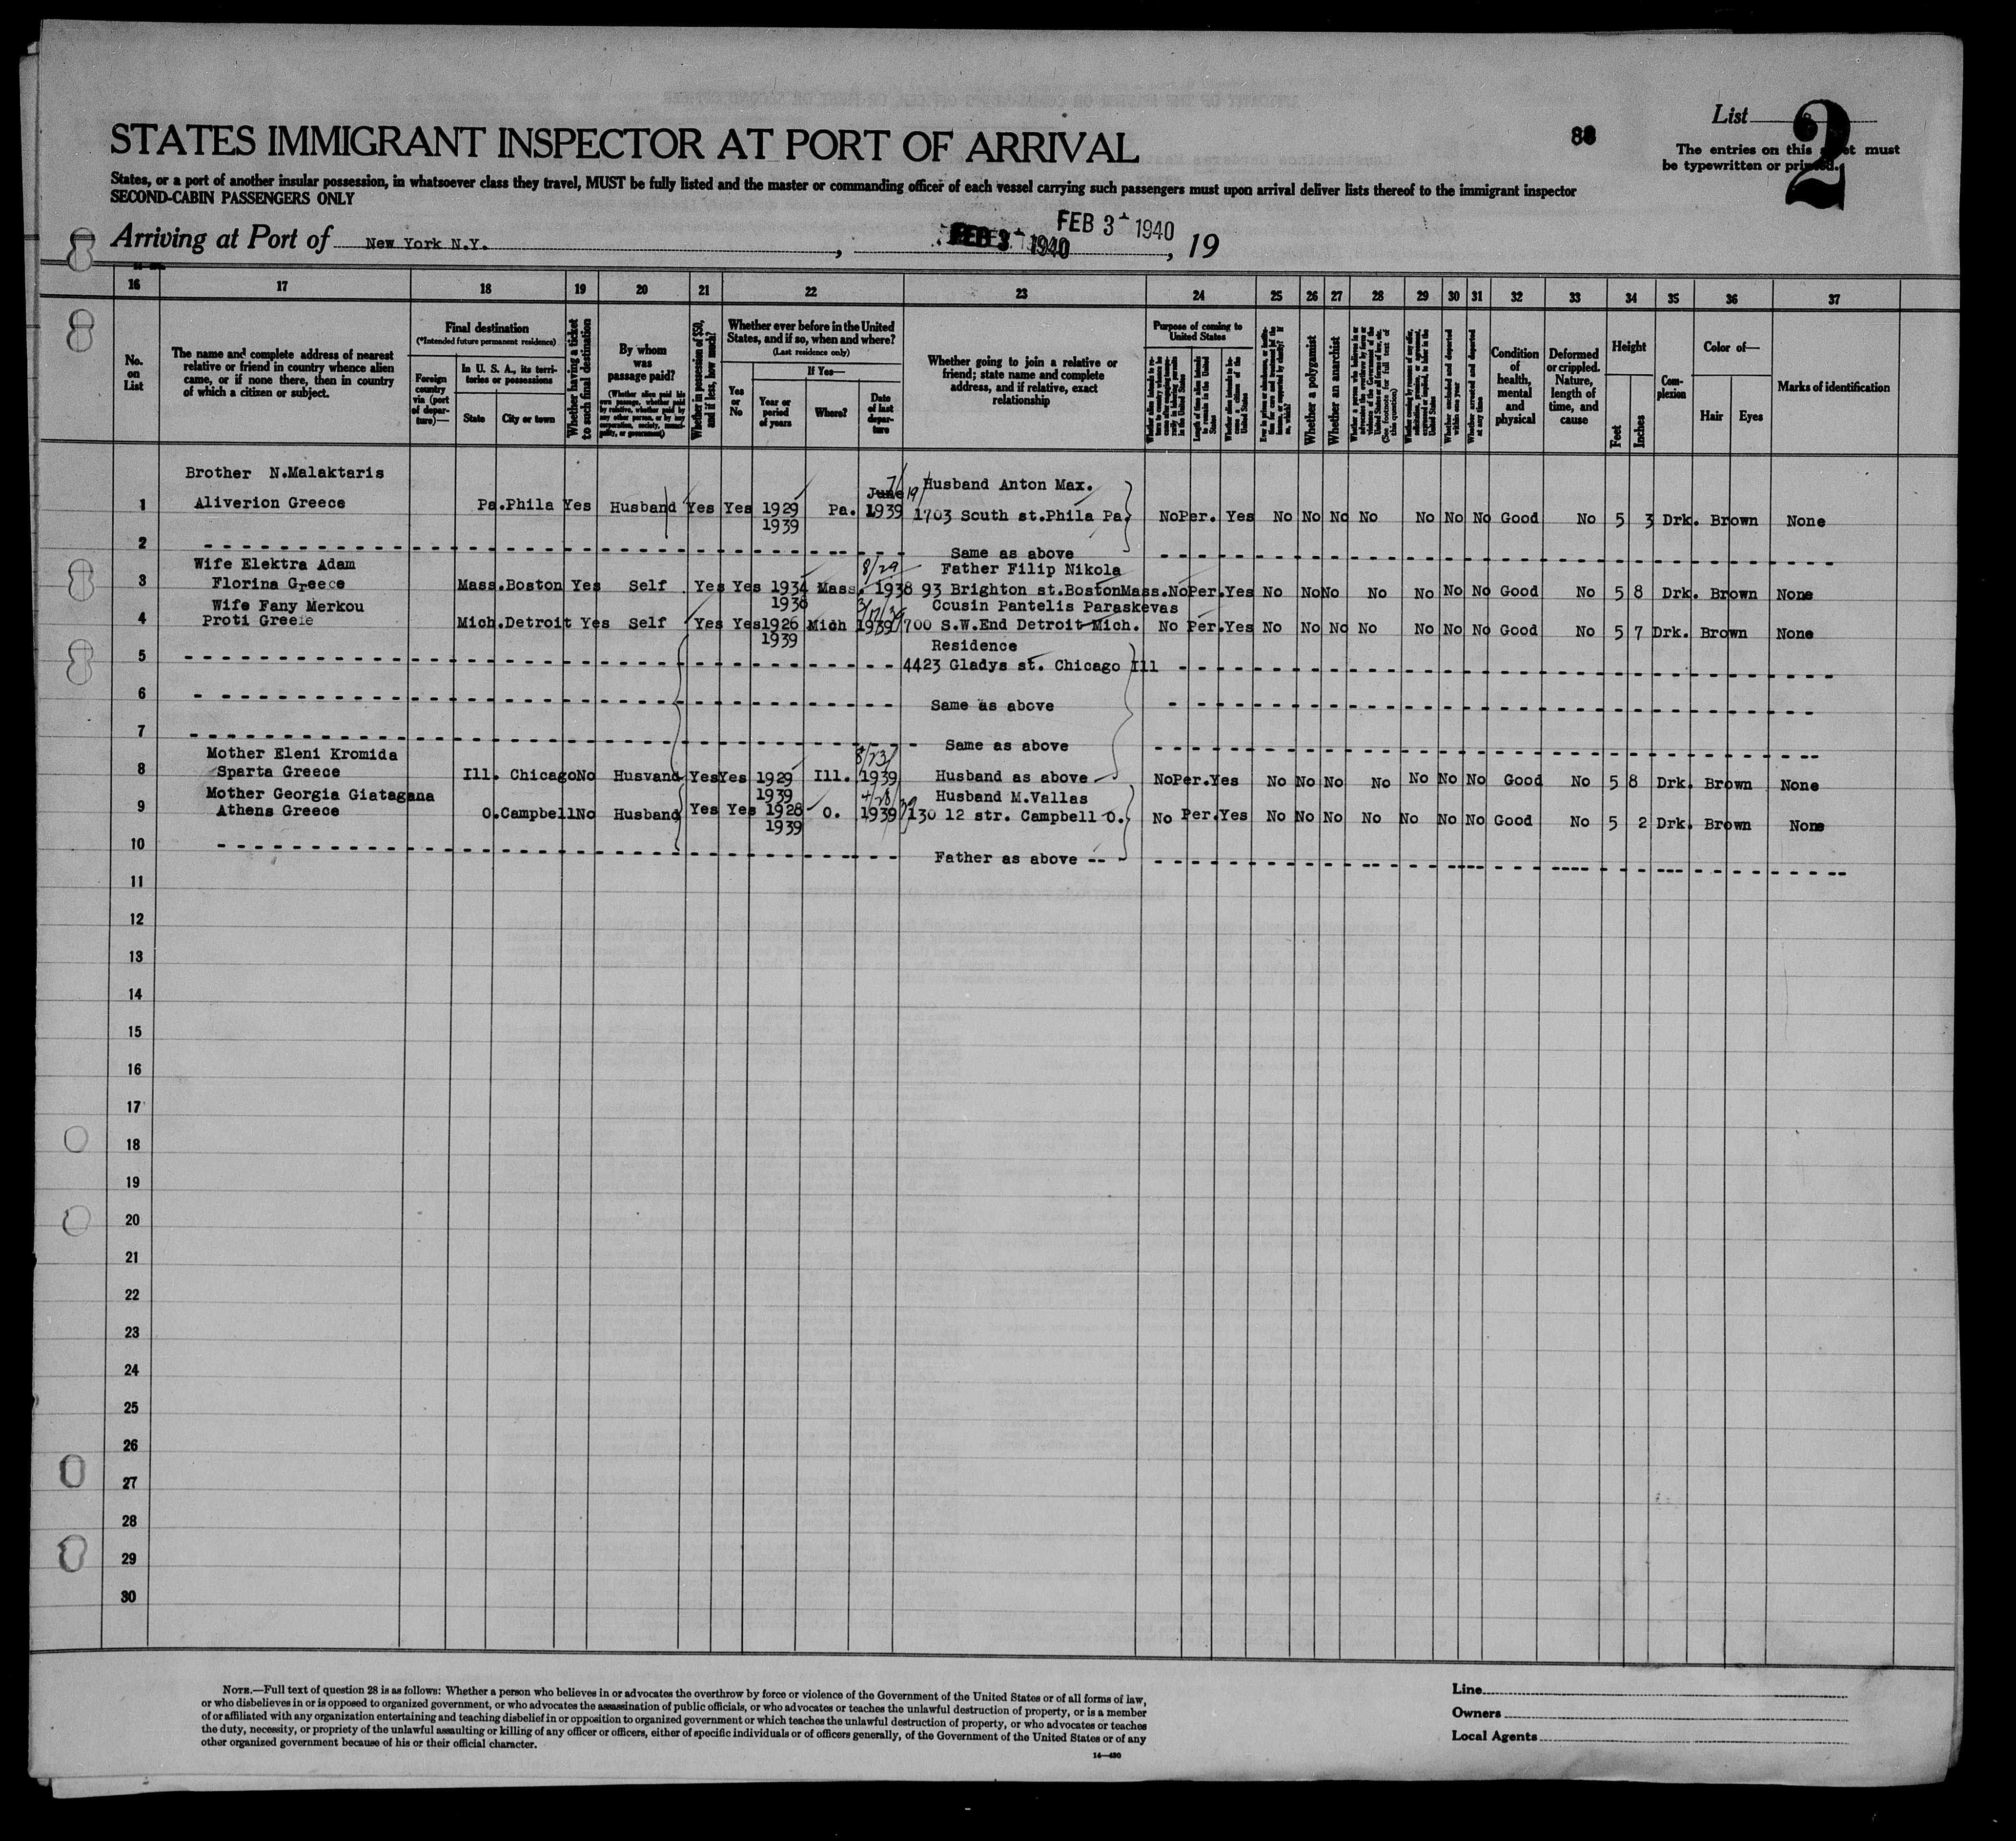 List
2
STATES IMMIGRANT INSPECTOR AT PORT OF ARRIVAL
The entries on this must
be typewritten or printed.
States, or a port of another insular possession, in whatsoever class they travel, MUST be fully listed and the master or commanding officer of each vessel carrying such passengers must upon arrival deliver lists thereof to the immigrant inspector
SECOND-CABIN PASSENGERS ONLY
FEB 3 1940
Arriving at Port of New York N.Y. , FEB 3 1940 , 19
16 17 18 19 20 21 22 23 24 25 26 27 28 29 30 31 32 33 34 35 36 37
No. on List
The name and complete address of nearest relative or friend in country whence alien came, or if none there, then in country of which a citizen or subject.
Final destination
(*Intended future permanent residence)
Foreign country via (port of departure)—
In U. S. A., its territories or possessions
State
City or town
Whether having a ticket to such final destination
By whom was passage paid?
(Whether alien paid his own passage, whether paid by relative, whether paid by any other person, or by any corporation, society, municipality, or government)
Whether in possession of $50, and if less, how much?
Whether ever before in the United States, and if so, when and where?
(Last residence only)
Yes or No
If Yes—
Year or period of years
Where?
Date of last departure
Whether going to join a relative or friend; state name and complete address, and if relative, exact relationship
Purpose of coming to United States
Whether a polygamist
Whether an anarchist
Condition of health, mental and physical
Deformed or crippled. Nature, length of time, and cause
Height
Feet
Inches
Complexion
Color of—
Hair
Eyes
Marks of identification
Brother N.Malaktaris
7/19/ Husband Anton Max.
June
1 Aliverion Greece Pa.Phila Yes Husband Yes Yes 1929 Pa. 1939 1703 South st.Phila Pa. No Per. Yes No No No No No No No Good No 5 3 Drk. Brown None
1939
2 Same as above
Wife Elektra Adam 8/29 Father Filip Nikola
3 Florina Greece Mass.Boston Yes Self Yes Yes 1934 Mass. 1938 93 Brighton st.BostonMass. No Per. Yes No No No No No No No Good No 5 8 Drk. Brown None
1938
Wife Fany Merkou 3/17/39 Cousin Pantelis Paraskevas
4 Proti Greele Mich.Detroit Yes Self Yes Yes 1926 Mich 1939 700 S.W.End Detroit Mich. No Per. Yes No No No No No No No Good No 5 7 Drk. Brown None
1939 Residence
5 4423 Gladys st. Chicago Ill
6 Same as above
7 Same as above
Mother Eleni Kromida
8 Sparta Greece Ill. Chicago No Husvand Yes Yes 1929 Ill. 1939 Husband as above No Per. Yes No No No No No No No Good No 5 8 Drk. Brown None
1939
Mother Georgia Giatagana 4/28/39 Husband M.Vallas
9 Athens Greece O.Campbell No Husband Yes Yes 1928 O. 1939 130 12 str. Campbell O. No Per. Yes No No No No No No No Good No 5 2 Drk. Brown None
1939
10 Father as above
11
12
13
14
15
16
17
18
19
20
21
22
23
24
25
26
27
28
29
30
NOTE.—Full text of question 28 is as follows: Whether a person who believes in or advocates the overthrow by force or violence of the Government of the United States or of all forms of law,
or who disbelieves in or is opposed to organized government, or who advocates the assassination of public officials, or who advocates or teaches the unlawful destruction of property, or is a member
of or affiliated with any organization entertaining and teaching disbelief in or opposition to organized government or which teaches the unlawful destruction of property, or who advocates or teaches
the duty, necessity, or propriety of the unlawful assaulting or killing of any officer or officers, either of specific individuals or of officers generally, of the Government of the United States or of any
other organized government because of his or their official character.
14—430
Line
Owners
Local Agents